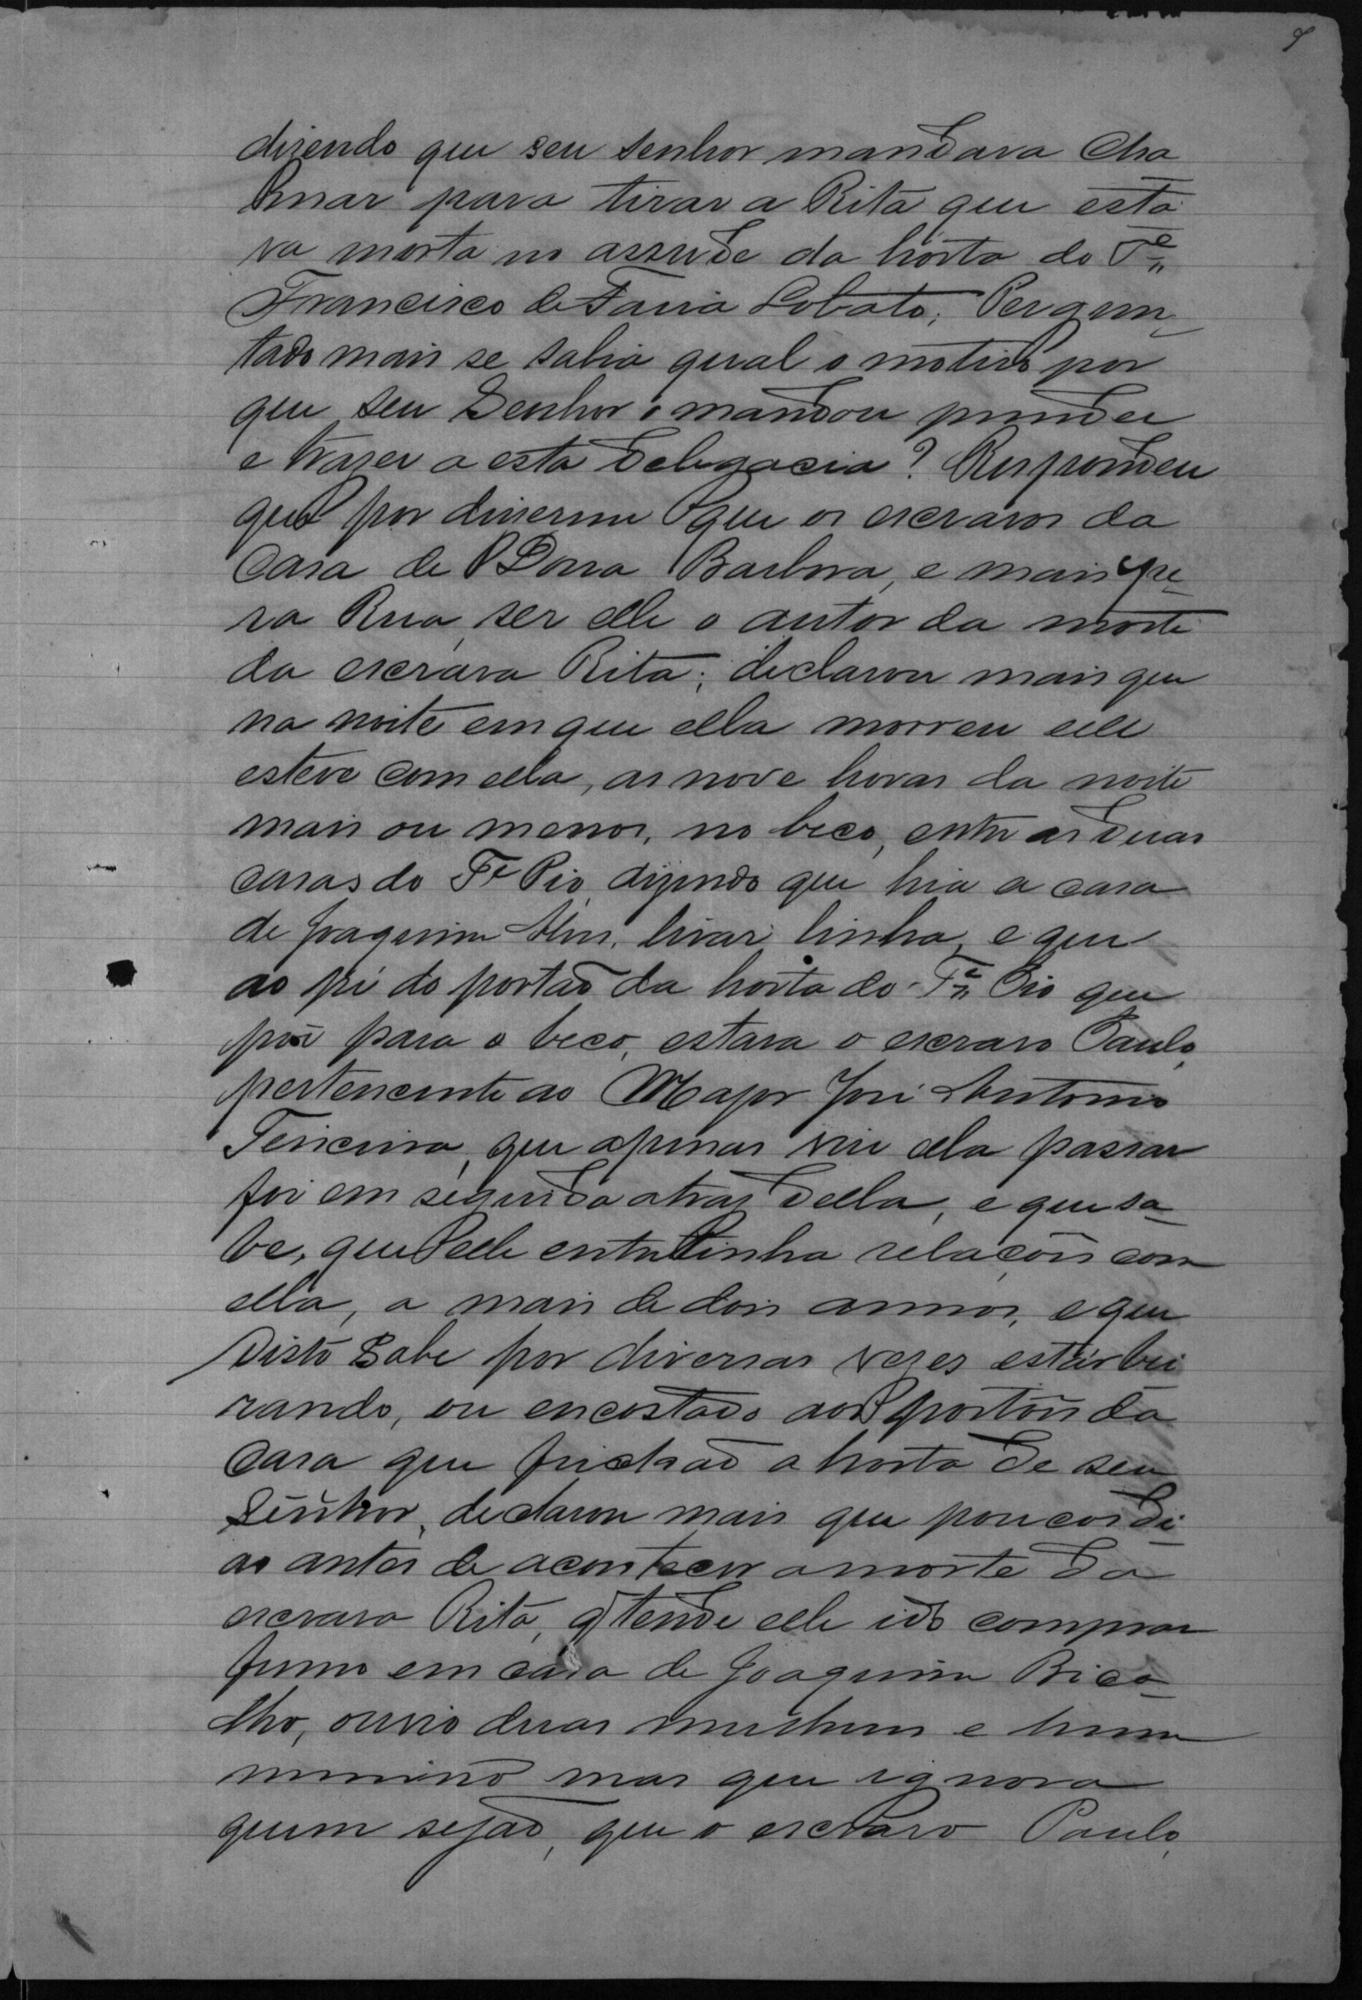 9
dizendo que seu senhor mandava cha
mar para tirar a Rita que esta
va morta no assude da horta do Te
Francisco de Faria Lobato; Pergun
tado mais se sabia qual o motivo por
que seu Senhor o mandou prender
e trazer a esta Delegacia? Respondeu
que por diserem que os escravos da
Casa de Dona Barbosa, e mais pe
ra Rua, ser elle o autor da morte
da escrava Rita; declarou mais que
na noite em que ella morreu elle
esteve com ella, as nove horas da noite
mais ou menos, no beco, entre as Duas
casas do Te Pio, dizendo que hia a casa
de Joaquim levar linha, e que
ao pé do portão da horta do Te Pio que
põe para o beco, estava o escravo Paulo,
pertencente ao Major José Antonio
Teixeira, que apenas viu ella passar
foi em seguida atraz Della, e que sa
be, que elle entretinha relações com
ella, a mais de dois annos, e que
disto Sabe por diversas vezes estar bei
rando, ou encostado aos portões da
casa que fechão a horta de seu
Senhor, declarou mais que poucos di
as antes de acontecer a morte Da
escrava Rita, tende elle ido comprar
fumo em casa de Joaquim Bica
lho, ouvio duas mulheres e hum
menino mas que ignora
quem sejão, que o escravo Paulo,